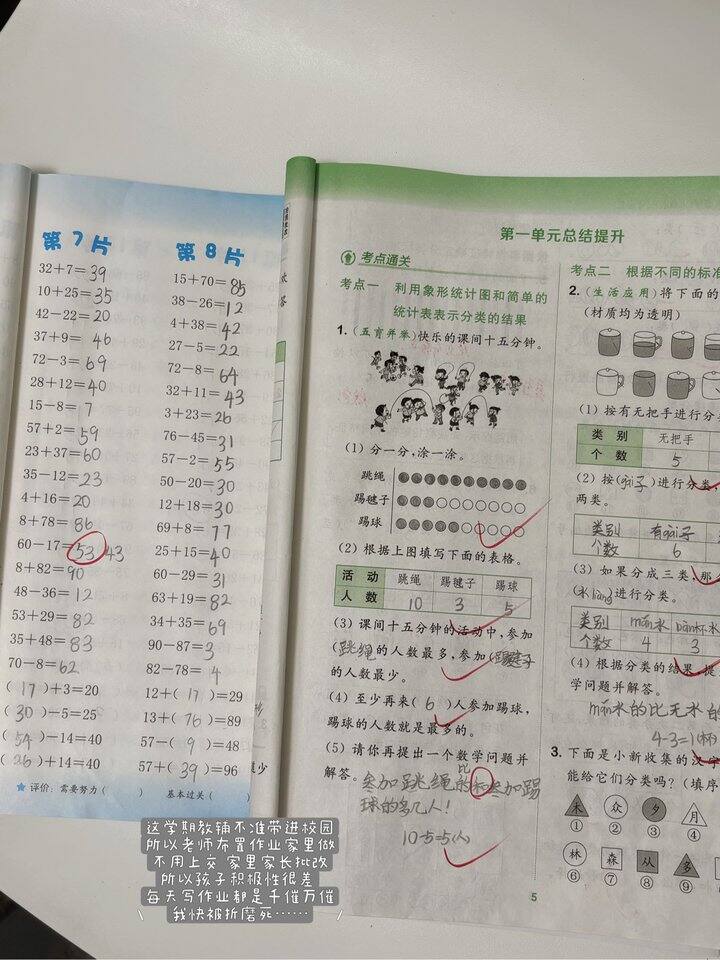 第7片
32+7=39
10+25=35
42-22=20
37+9= 46
72-3=69
28+12=40
15-8= 7
57+2=59
23+37=60
35-12=23
4+16=20
8+78=86
60-17=53 43
8+82=90
48-36=12
53+29=82
35+48=83
70-8=62
(17)+3=20
(30)-5=25
(54)-14=40
(26)+14=40
评价：需要努力( ) 基本过关(
第8片
15+70=85
38-26=12
4+38=42
27-5=22
72-8=64
32+11=43
3+23=26
76-45=31
57-2=55
50-20=30
12+18=30
69+8=77
25+15=40
60-29=31
63+19=82
34+35=69
90-87=3
82-78=4
12+(17)=29
13+(76)=89
57-(9)=48
57+(39)=96
第一单元总结提升
考点通关
考点一 利用象形统计图和简单的
统计表表示分类的结果
1.(五育并举)快乐的课间十五分钟。
(1)分一分,涂一涂。
跳绳
踢毽子
踢球
(2)根据上图填写下面的表格。
活动 跳绳 踢毽子 踢球
人数 10 3 5
(3)课间十五分钟的活动中,参加
(跳绳)的人数最多,参加(踢毽子
的人数最少。
(4)至少再来(6)人参加踢球,
踢球的人数就是最多的。
(5)请你再提出一个数学问题并
解答。
参加跳绳的比和参加踢
球的多几人!
10-5=5(人)
5
考点二 根据不同的标准
2.(生活应用)将下面的
(材质均为透明)
(1)按有无把手进行分
类别 无把手
个数 5
(2)按(gài子)进行分类
两类。
类别 有gài子
个数 6
(3)如果分成三类,那么
(水liàng)进行分类。
类别 mǎn水 bàn杯水
个数 4 3
(4)根据分类的结果,提
学问题并解答。
mǎn水的比无水的
4-3=1(杯)
3.下面是小新收集的汉字
能给它们分类吗?(填序
木 众 夕 月
① ② ③ ④
林 森 从 多
⑥ ⑦ ⑧ ⑨
这学期教辅不准带进校园
所以老师布置作业家里做
不用上交 家里家长批改
所以孩子积极性很差
每天写作业都是千催万催
\ 我快被折磨死…… /